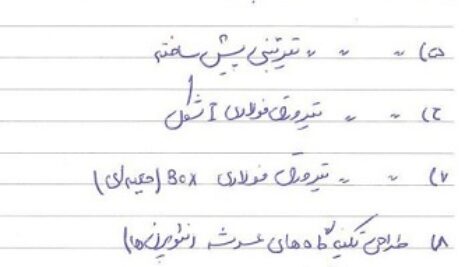 ۵) 〃 〃 〃 تیر بتنی پیش ساخته
۶) 〃 〃 تیر ورق فولادی I شکل
۷) 〃 〃 تیر ورق فولادی Box (جعبه‌ای)
۸) طراحی تکیه گاه های عرشه (نئوپرن‌ها)